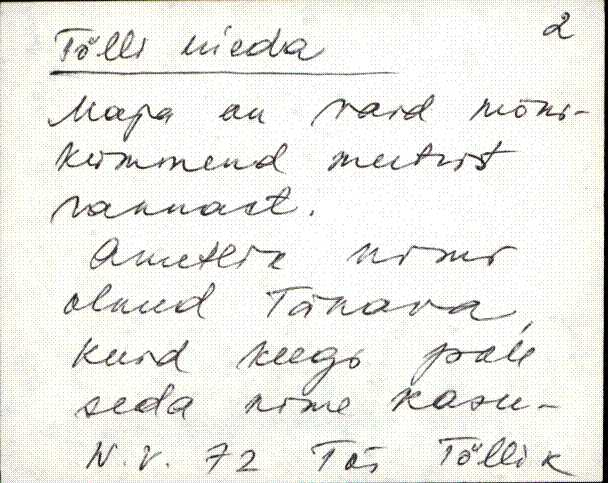 2
Tõlli nieda
Maja on vaid mõni-
kümmend meetrit
rannast.
Ametlik nimi
olnud Tänava,
kuid keegi pole
seda nime kasu-
N.V. 72 Tõllik